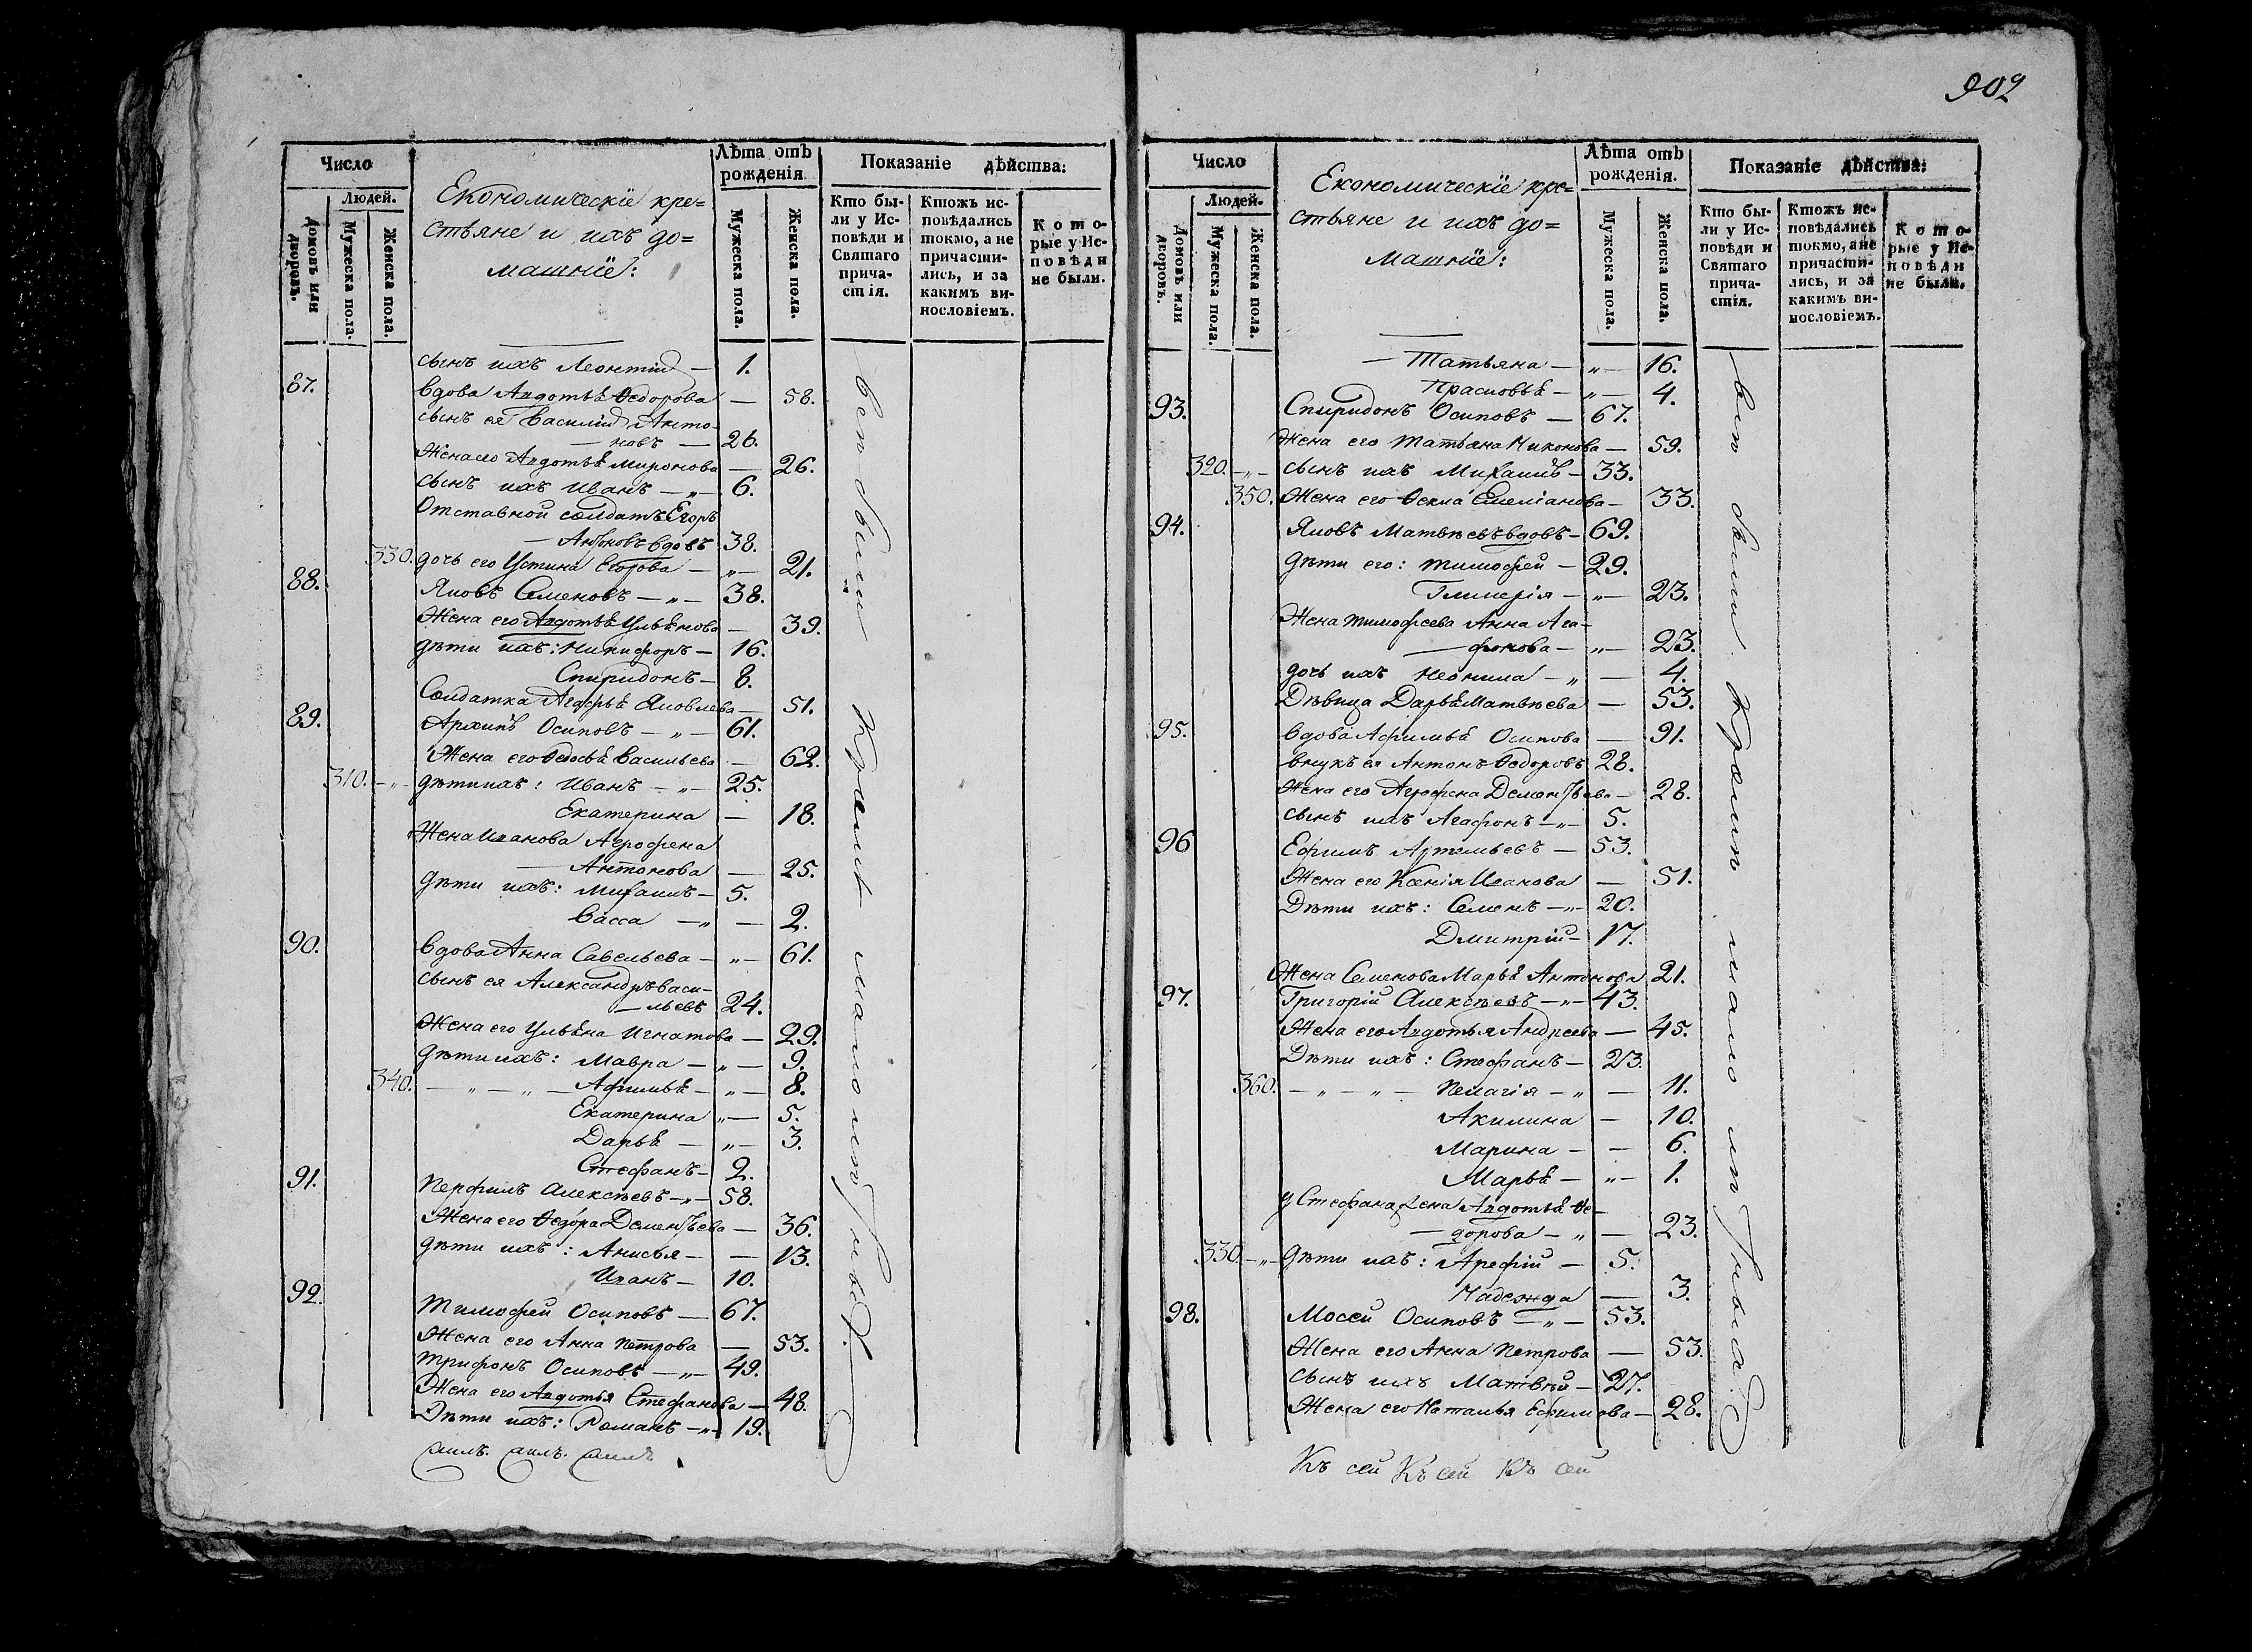 902
Число
Людей.
Домовъ или дворовъ.
Мужеска пола.
Женска пола.
Економическїе кре=
стьяне и ихъ до=
машнїе:
Лѣта отъ
рожденія.
Мужеска пола.
Женска пола.
Показаніе дѣйства:
Кто бы-
ли у Ис-
повѣди и
Святаго
прича-
стія.
Ктожъ ис-
повѣдались
токмо, а не
причасти-
лись, и за
какимъ ви-
нословіемъ.
Кото-
рые у Ис-
повѣди
не были.
сынъ ихъ Леонтій — 1.
87. вдова Авдотьѣ Ѳедорова — 58.
сынъ ея Василій Анто-
— новъ — 26.
Жена его Авдотьѣ Миронова — 26.
сынъ ихъ Иванъ — „ — 6.
Отставной солдатъ Егоръ
— Антоновъ вдовъ 38.
330. дочь его Устина Егорова — „ — 21.
88. Яковъ Семеновъ — „ — 38.
Жена его Авдотьѣ Ульѣнова — 39.
дѣти ихъ: Никифоръ — 16.
Спиридонъ — 8.
Солдатка Агафьѣ Яковлева — 51.
89. Архипъ Осиповъ — „ — 61.
Жена его Ѳедосьѣ Васильева — 62.
310. — „ — дѣти ихъ: Иванъ — „ — 25.
Екатерина — 18.
Жена Иванова Агрофена
— Антонова — 25.
дѣти ихъ: Михаилъ — 5.
Васса — „ — 2.
90. вдова Анна Савельева — „ — 61.
сынъ ея Александръ Васи-
— льевъ 24.
Жена его Ульѣна Игнатова — 29.
дѣти ихъ: Мавра — „ — 9.
340. — „ — „ — Афимьѣ — „ — 8.
Екатерина „ — 5.
Дарьѣ — „ — 3.
Стефанъ — 2.
91. Перфилъ Алексѣевъ — „ — 58.
Жена его Ѳедора Дементьева — 36.
дѣти ихъ: Анисья — — 13.
Иванъ — 10.
92. Тимофей Осиповъ — 67.
Жена его Анна Петрова — 53.
Трифонъ Осиповъ — „ — 49.
Жена его Авдотья Стефанова — 48.
Дѣти ихъ: Романъ — „ — 19.
Число
Людей.
Домовъ или дворовъ.
Мужеска пола.
Женска пола.
Економическїе кре=
стьяне и ихъ до=
машнїе:
Лѣта отъ
рожденія.
Мужеска пола.
Женска пола.
Показаніе дѣйства:
Кто бы-
ли у Ис-
повѣди и
Святаго
прича-
стія.
Ктожъ ис-
повѣдались
токмо, а не
причасти-
лись, и за
какимъ ви-
нословіемъ.
Кото-
рые у Ис-
повѣди
не были.
— Татьяна — „ — 16.
Прасковьѣ — „ — 4.
93. Спиридонъ Осиповъ — 67.
Жена его Татьяна Никонова — 59.
320. — „ — сынъ ихъ Михаилъ — 33.
350. Жена его Ѳекла Емеліанова — 33.
94. Яковъ Матвѣевъ вдовъ — 69.
дѣти его: Тимофей — 29.
Гликерія — „ — 23.
Жена Тимофеева Анна Ага-
— фонова — „ — 23.
дочь ихъ Неонила — „ — 4.
Дѣвица Дарьѣ Матвѣева — 53.
95. вдова Афимьѣ Осипова — 91.
внукъ ея Антонъ Ѳедоровъ 28.
Жена его Агрофена Дементьева — 28.
сынъ ихъ Агафонъ — „ — 5.
96 Ефимъ Артемьевъ — 53.
Жена его Ксенія Иванова — 51.
Дѣти ихъ: Семенъ — „ — 20.
Дмитрій — 17.
Жена Семенова Марьѣ Антонова 21.
97. Григорій Алексѣевъ — „ — 43.
Жена его Авдотья Андреева — 45.
Дѣти ихъ: Стефанъ — 23.
360. — „ — „ — Пелагія — „ — 11.
Акилина — 10.
Марина — — 6.
Марьѣ — „ — 1.
у Стефана жена Авдотьѣ Ѳе-
— дорова — „ — 23.
330. — „ — дѣти ихъ: Арефій — 5.
Надежда — 3.
98. Мосей Осиповъ — „ — 53.
Жена его Анна Петрова — 53.
сынъ ихъ Матвѣй — 27.
Жена его Наталья Ефимова — 28.
Къ сей Къ сей Къ сей